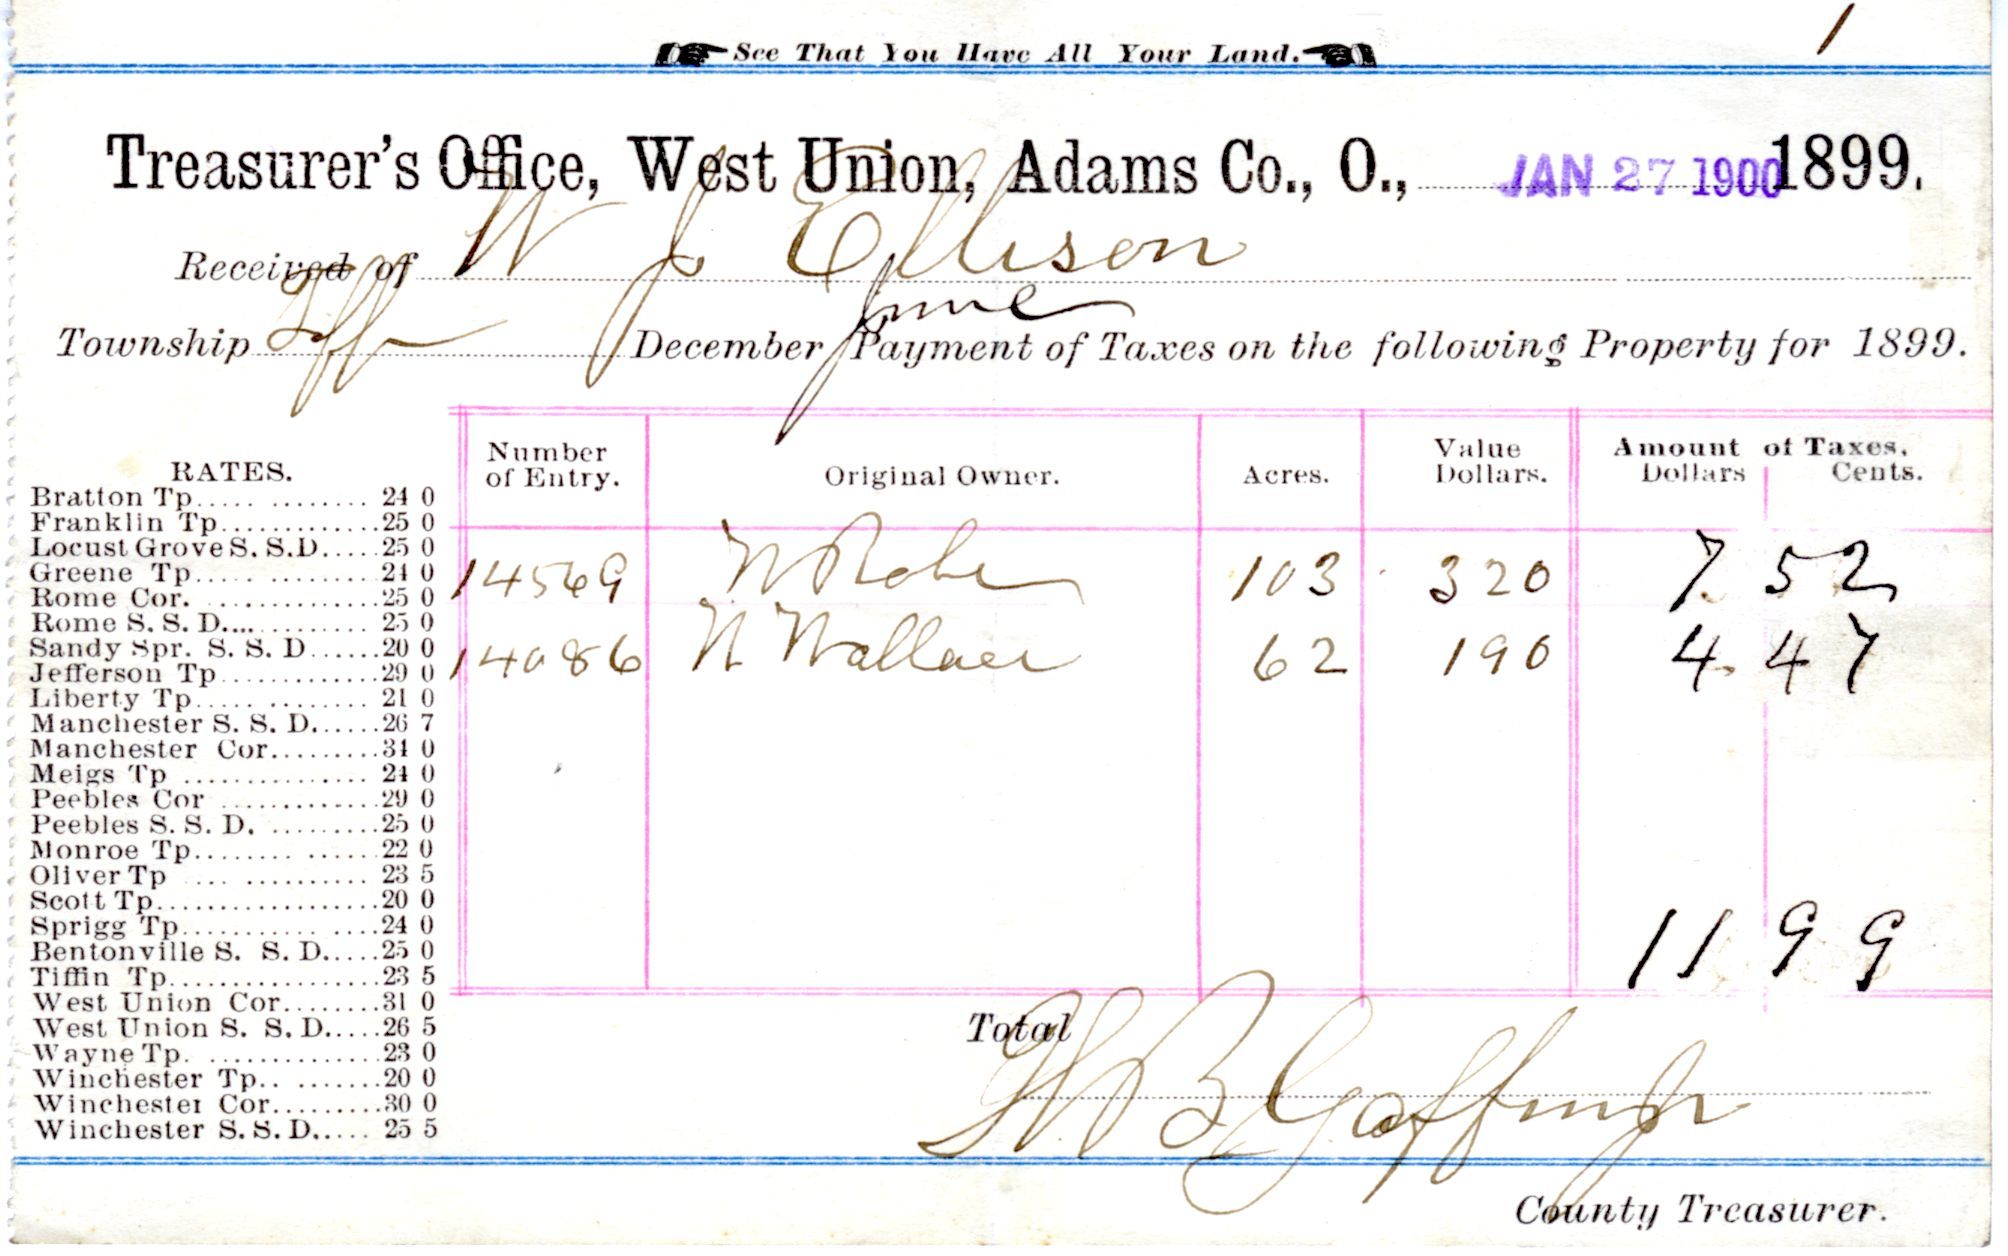 1
See That You Have All Your Land.
Treasurer's Office, West Union, Adams Co., O., JAN 27 1900 1899.
Received of W J Ellison
June
Township Tiffin December Payment of Taxes on the following Property for 1899.
RATES.
Bratton Tp..... ......... 24 0
Franklin Tp.............25 0
Locust Grove S. S.D.....25 0
Greene Tp..... ......... 24 0
Rome Cor. .............25 0
Rome S. S. D..............25 0
Sandy Spr. S. S. D......20 0
Jefferson Tp.............29 0
Liberty Tp..... ......... 21 0
Manchester S. S. D......26 7
Manchester Cor.........31 0
Meigs Tp ................ 24 0
Peebles Cor .............29 0
Peebles S. S. D. .........25 0
Monroe Tp........ ......22 0
Oliver Tp .... .......... 23 5
Scott Tp..................20 0
Sprigg Tp........... ....24 0
Bentonville S. S. D.....25 0
Tiffin Tp.................23 5
West Union Cor........31 0
West Union S. S. D.....26 5
Wayne Tp. .............23 0
Winchester Tp.. .......20 0
Winchester Cor.........30 0
Winchester S. S. D..... 25 5
Number of Entry. Original Owner. Acres. Value Dollars. Amount of Taxes. Dollars Cents.
14569 N 103 320 7 52
14086 W Wallace 62 190 4. 47
11 99
Total
County Treasurer.